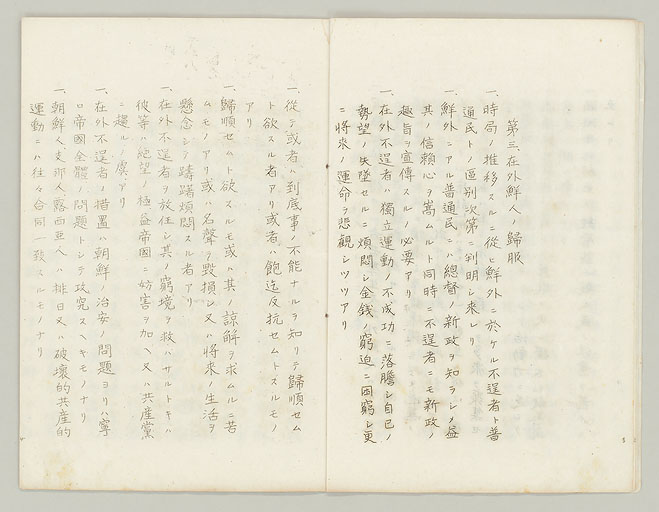 第三、在外鮮人ノ歸服
一、時局ノ推移スルニ從ヒ鮮外ニ於ケル不逞者ト普
通民トノ區別次第ニ判明シ來レリ
鮮外ニアル普通民ニハ總督ノ新政ヲ知ラシメ益
其ノ信賴心ヲ嵩ムルト同時ニ不逞者ニモ新政ノ
趣旨ヲ宣傳スルノ必要アリ
一、在外不逞者ハ獨立運動ノ不成功ニ落膽シ自己ノ
勢望ノ失墜セルニ煩悶シ金錢ノ窮迫ニ困窮シ更
ニ將來ノ運命ヲ悲觀シツツアリ
一、從テ或者ハ到底事ノ不能ナルヲ知リテ歸順セム
ト欲スル者アリ或者ハ飽迄反抗セムトスルモノ
アリ
一、歸順セムト欲スルモ或ハ其ノ諒解ヲ求ムルニ苦
ムモノアリ或ハ名聲ヲ毀損シ又ハ將來ノ生活ヲ
懸念シテ躊躇煩悶スル者アリ
一、在外不逞者ヲ放任シ其ノ窮境ヲ救ハサルトキハ
彼等ハ絶望ノ極益帝國ニ妨害ヲ加ヘ又ハ共産黨
ニ趨ルノ虞アリ
一、在外不逞者ノ措置ハ朝鮮ノ治安ノ問題ヨリハ寧
ロ帝國全體ノ問題トシテ攻究スヘキモノナリ
一、朝鮮人支那人露西亜人ハ排日又ハ破壊的共産的
運動ニハ往々合同一致スルモノナリ